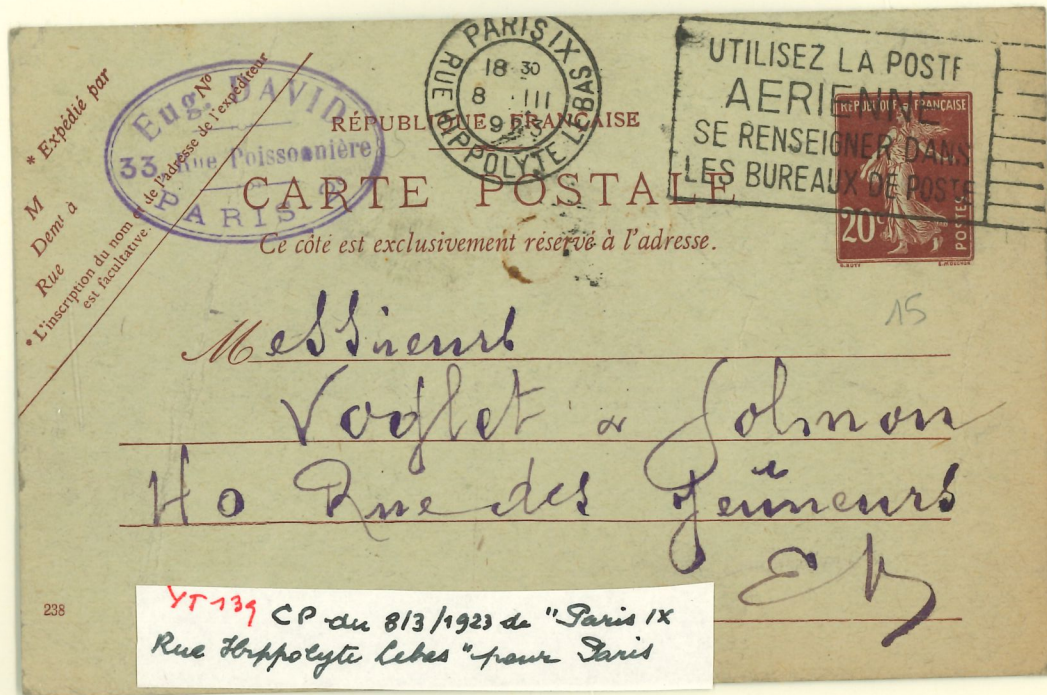 * Expédié par
M
Demt à
Rue
No
* L'inscription du nom et de l'adresse de l'expéditeur
est facultative.
Eug. DAVID
33 Rue Poissonnière
PARIS
PARIS IX
RUE HIPPOLYTE LEBAS
18 30
8 III
UTILISEZ LA POSTE
AERIENNE
SE RENSEIGNER DANS
LES BUREAUX DE POSTE
RÉPUBLIQUE FRANÇAISE
CARTE POSTALE
Ce côté est exclusivement réservé à l'adresse.
RÉPUBLIQUE FRANÇAISE
20c
POSTES
15
Messieurs
Voglet & Solmon
40 Rue des Jeûneurs
EV
238
YT 139 CP du 8/3/1923 de "Paris IX
Rue Hippolyte Lebas" pour Paris